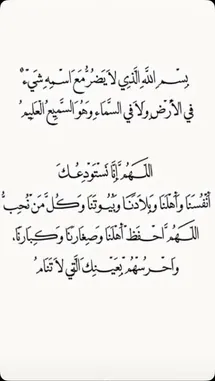 بِسْمِ اللَّهِ الَّذِي لَا يَضُرُّ مَعَ اسْمِهِ شَيْءٌ
فِي الْأَرْضِ وَلَا فِي السَّمَاءِ وَهُوَ السَّمِيعُ الْعَلِيمُ
اللَّهُمَّ إِنَّا نَسْتَوْدِعُكَ
أَنْفُسَنَا وَأَهْلَنَا وَبِلَادَنَا وَبُيُوتَنَا وَكُلَّ مَنْ نُحِبُّ
اللَّهُمَّ احْفَظْ أَهْلَنَا وَصِغَارَنَا وَكِبَارَنَا،
وَاحْرُسْهُمْ بِعَيْنِكَ الَّتِي لَا تَنَامُ